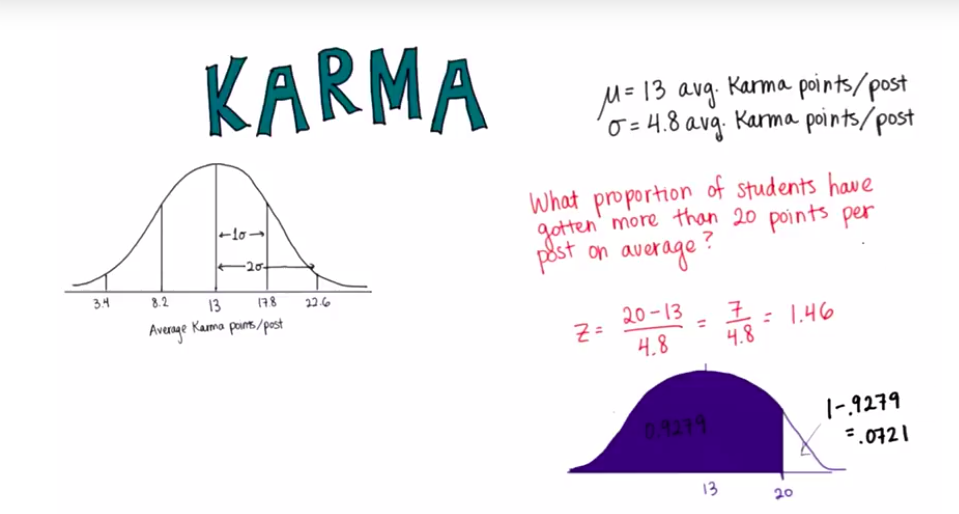 KARMA
μ = 13 avg. Karma points/post
σ = 4.8 avg. Karma points/post
←1σ→
←2σ→
3.4 8.2 13 17.8 22.6
Average Karma points/post
What proportion of students have
gotten more than 20 points per
post on average?
Z = 20-13 / 4.8 = 7 / 4.8 = 1.46
0.9279
1-.9279
=.0721
13 20